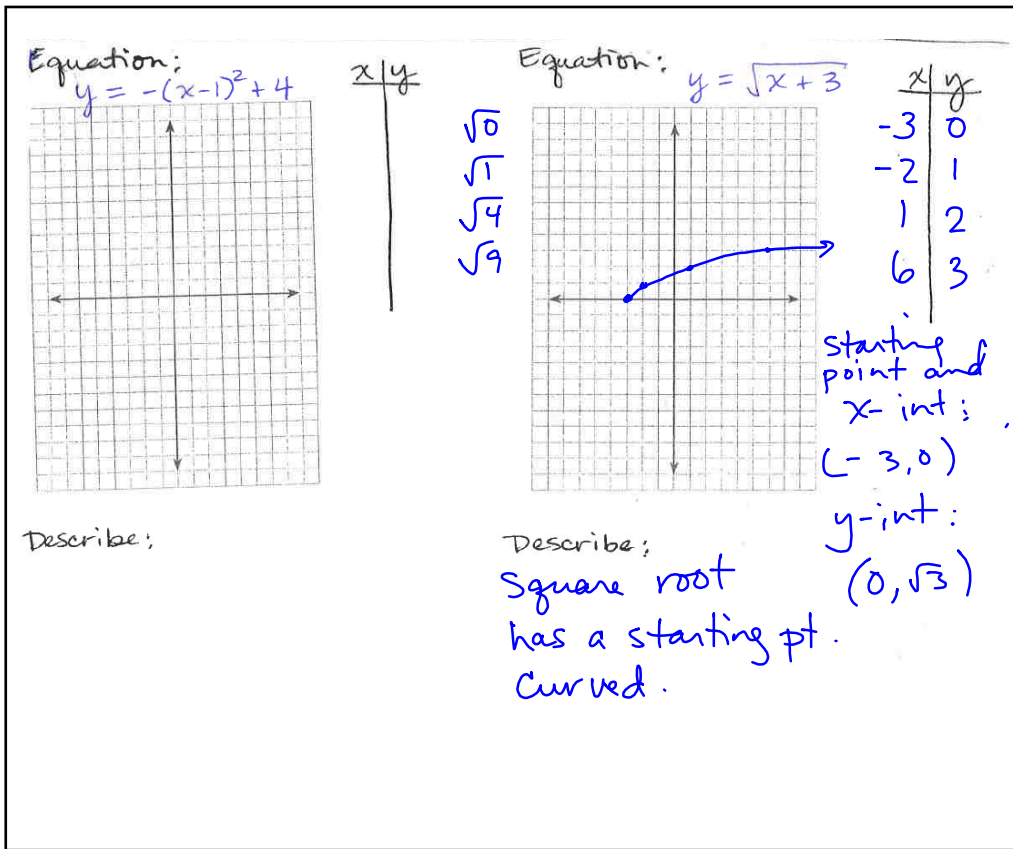 Equation:
y = -(x-1)² + 4
x | y
Describe:
Equation:
y = √(x + 3)
√0
√1
√4
√9
x | y
-3 | 0
-2 | 1
1 | 2
6 | 3
starting
point and
x-int:
(-3,0)
y-int:
(0,√3)
Describe:
square root
has a starting pt.
Curved.